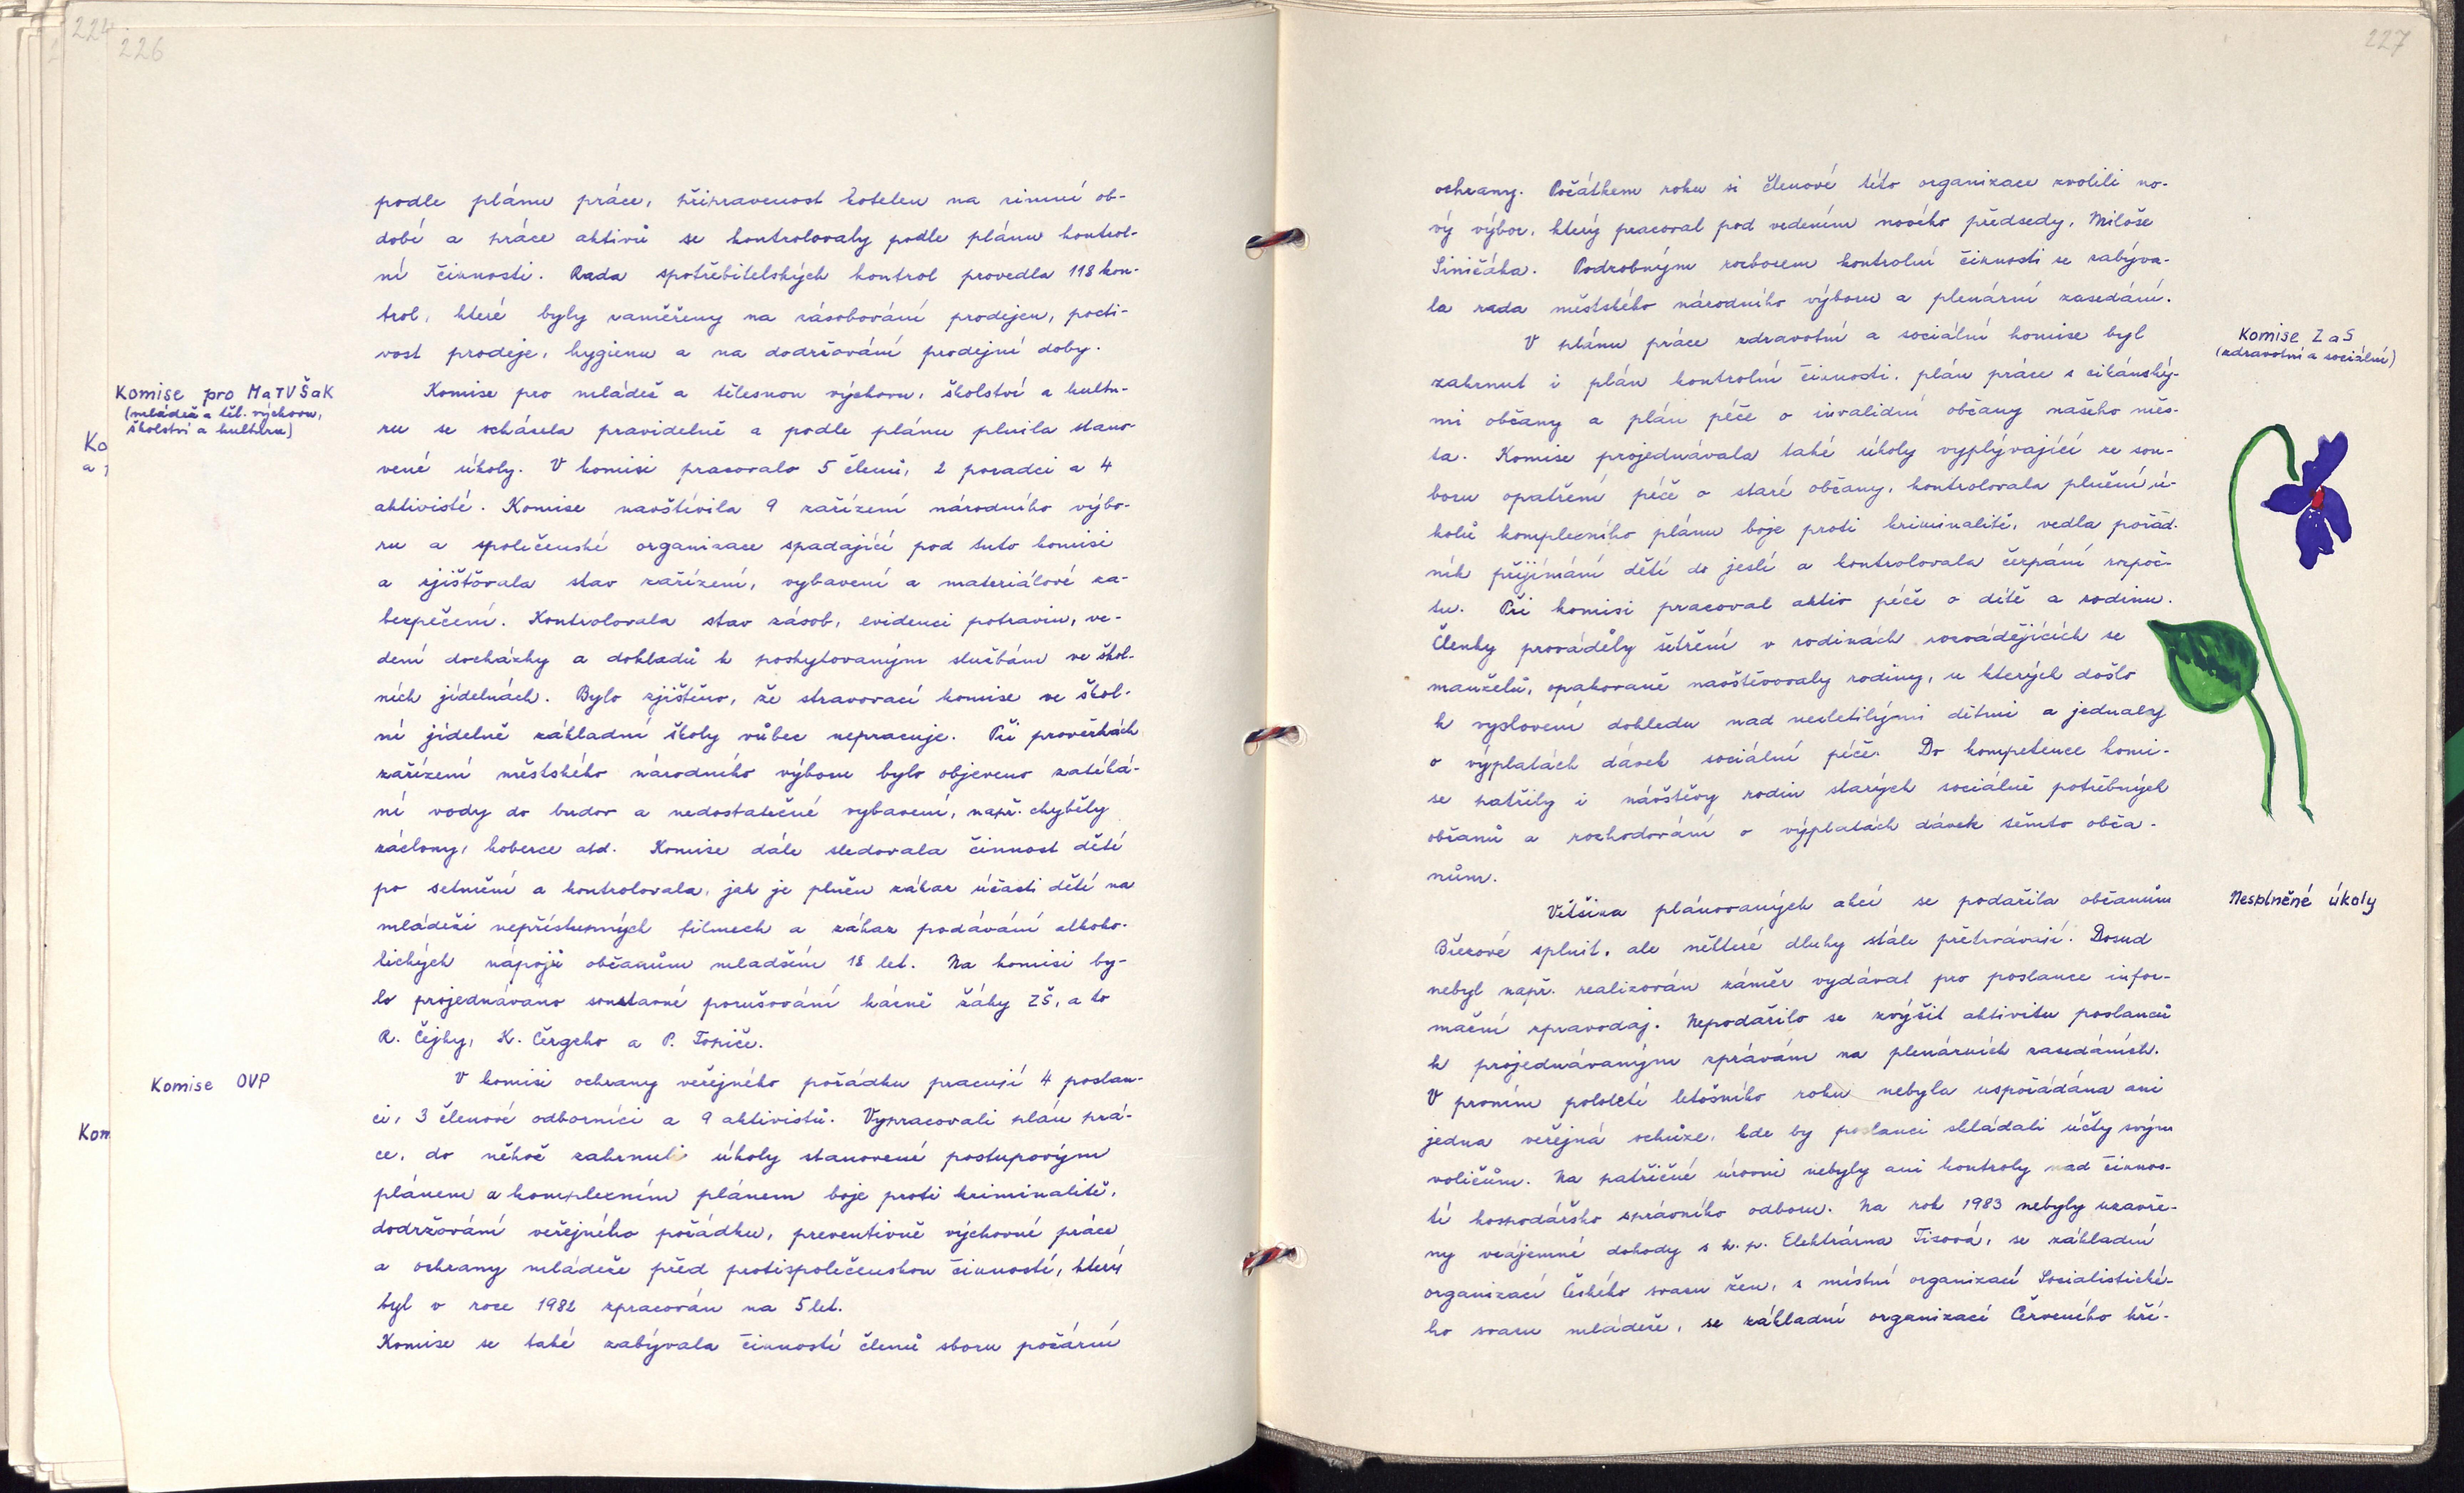 224
226
podle plánu práce, připravenost kotelen na zimní ob-
dobí a práce aktivů se kontrolovaly podle plánu kontrol-
ní činnosti. Rada spotřebitelských kontrol provedla 118 kon-
trol, které byly zaměřeny na zásobování prodejen, pocti-
vost prodeje, hygienu a na dodržování prodejní doby.
Komise pro MaTVŠaK
(mládež a těl. výchovu,
školství a kulturu)
Komise pro mládež a tělesnou výchovu, školství a kultu-
ru se scházela pravidelně a podle plánu plnila stano-
vené úkoly. V komisi pracovalo 5 členů, 2 poradci a 4
aktivisté. Komise navštívila 9 zařízení národního výbo-
ru a společenské organizace spadající pod tuto komisi
a zjišťovala stav zařízení, vybavení a materiálové za-
bezpečení. Kontrolovala stav zásob, evidenci potravin, ve-
dení docházky a dokladů k poskytovaným službám ve škol-
ních jídelnách. Bylo zjištěno, že stravovací komise ve škol-
ní jídelně základní školy vůbec nepracuje. Při prověrkách
zařízení městského národního výboru bylo objeveno zatéká-
ní vody do budov a nedostatečné vybavení, např. chyběly
záclony, koberce atd. Komise dále sledovala činnost dětí
po setmění a kontrolovala, jak je plněn zákaz účasti dětí na
mládeži nepřístupných filmech a zákaz podávání alkoho-
lických nápojů občanům mladším 18 let. Na komisi by-
lo projednáváno soustavné porušování kázně žáky ZŠ, a to
R. Čejky, K. Čergeho a P. Topiče.
Komise OVP
V komisi ochrany veřejného pořádku pracují 4 poslan-
ci, 3 členové odborníci a 9 aktivistů. Vypracovali plán prá-
ce, do něhož zahrnuli úkoly stanovené postupovým
plánem a komplexním plánem boje proti kriminalitě,
dodržování veřejného pořádku, preventivně výchovné práce
a ochrany mládeže před protispolečenskou činností, který
byl v roce 1982 zpracován na 5 let.
Komise se také zabývala činností členů sboru požární
Ko
a
Kom
227
ochrany. Počátkem roku si členové této organizace zvolili no-
vý výbor, který pracoval pod vedením nového předsedy, Miloše
Siničáka. Podrobným rozborem kontrolní činnosti se zabýva-
la rada městského národního výboru a plenární zasedání.
Komise ZaS
(zdravotní a sociální)
V plánu práce zdravotní a sociální komise byl
zahrnut i plán kontrolní činnosti, plán práce s cikánský-
mi občany a plán péče o invalidní občany našeho měs-
ta. Komise projednávala také úkoly vyplývající ze sou-
boru opatření péče o staré občany, kontrolovala plnění ú-
kolů komplexního plánu boje proti kriminalitě, vedla pořad-
ník přijímání dětí do jeslí a kontrolovala čerpání rozpoč-
tu. Při komisi pracoval aktiv péče o dítě a rodinu.
Členky prováděly šetření v rodinách rozvádějících se
manželů, opakovaně navštěvovaly rodiny, u kterých došlo
k vyslovení dohledu nad nezletilými dětmi a jednaly
o výplatách dávek sociální péče. Do kompetence komi-
se patřily i návštěvy rodin starých sociálně potřebných
občanů a rozhodování o výplatách dávek těmto obča-
nům.
Nesplněné úkoly
Většina plánovaných akcí se podařila občanům
Březové splnit, ale některé dluhy stále přetrvávají. Dosud
nebyl např. realizován záměr vydávat pro poslance infor-
mační zpravodaj. Nepodařilo se zvýšit aktivitu poslanců
k projednávaným zprávám na plenárních zasedáních.
V prvním pololetí letošního roku nebyla uspořádána ani
jedna veřejná schůze, kde by poslanci skládali účty svým
voličům. Na patřičné úrovni nebyly ani kontroly nad činnos-
tí hospodářsko správního odboru. Na rok 1983 nebyly uzavře-
ny vzájemné dohody s k. p. Elektrárna Tisová, se základní
organizací Českého svazu žen, s místní organizací Socialistické-
ho svazu mládeže, se základní organizací Červeného kří-